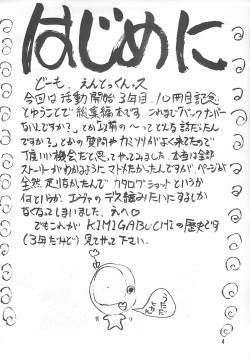 はじめに
どーも、えんどっくんっス
今回は活動開始3年目、10冊目記念
とゆうことで総集編本です。これまで「バックナンバー
ないんですか?」とか「以前の〜ってどんな話だったん
ですか?」とかの質問やカミソリがよく来てたので
頂いい機会だと思ってやってみました。本当は全部
ストーリーがわかるようにマトメたかったんですが、ページが
全然足りなかったんで カタログショットというか
何というか、エヴァのデス編みたいにするしか
なくなってしまいました、えへ♡
でもこれが KIMIGABUCHIの歴史です
(3年だけど) 見てやって下さい。